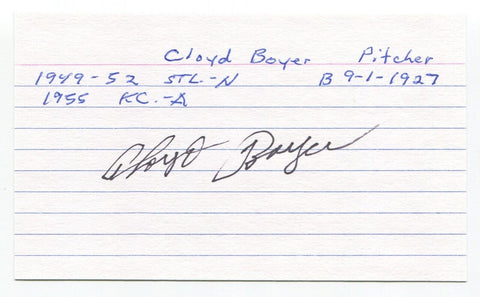 Cloyd Boyer Pitcher
1949-52 STL.-N B 9-1-1927
1955 KC.-A
Cloyd Boyer